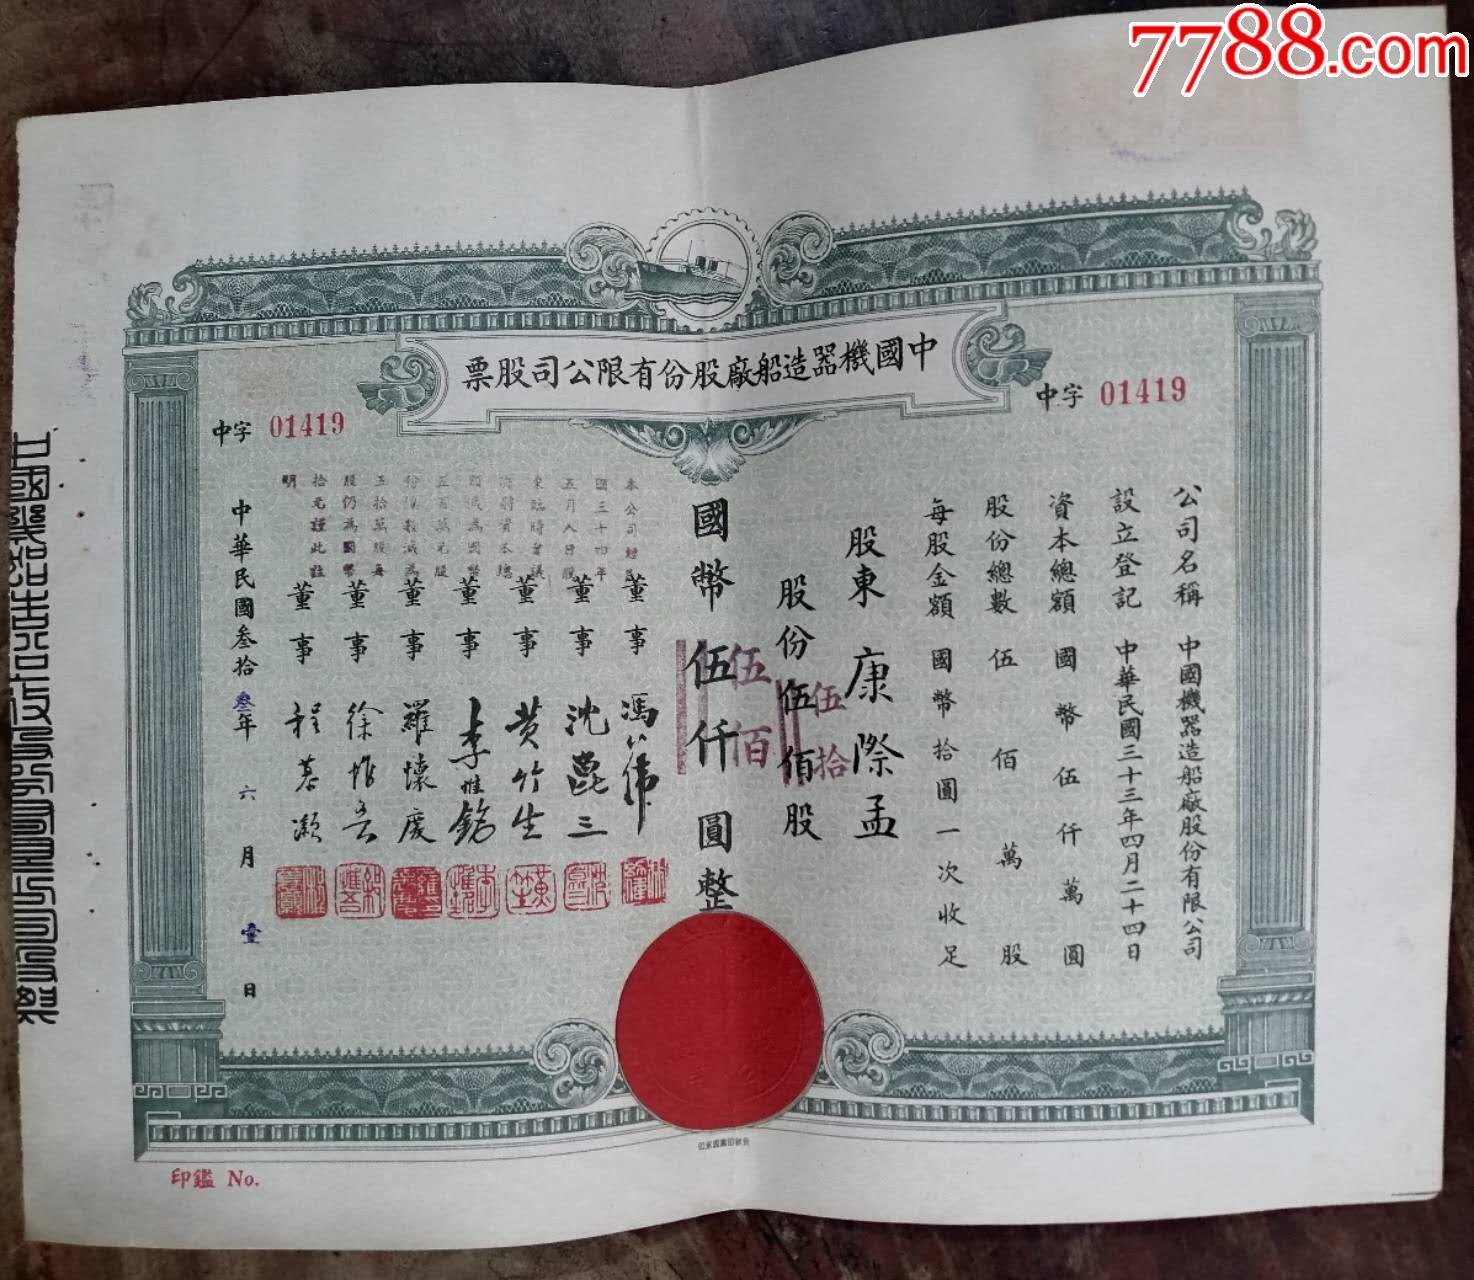 7788.com
中國機器造船廠股份有限公司股票
中字 01419
中字 01419
公司名稱 中國機器造船廠股份有限公司
設立登記 中華民國三十三年四月二十四日
資本總額 國幣伍仟萬圓
股份總數 伍佰萬股
每股金額 國幣拾圓一次收足
股東 康際孟
股份伍佰股
伍拾
國幣伍仟圓整
伍佰
本公司經
國三十四年
五月八日股
東臨時會議
決將資本總
額減為國幣
五百萬元股
份總數減為
五拾萬股每
股仍為國幣
拾元謹此註
明
董事 馮
董事 沈崑三
董事 黄竹生
董事 李維銘
董事 羅懷慶
董事 徐
董事 程慕灝
中華民國叁拾叁年六月壹日
印鑑 No.